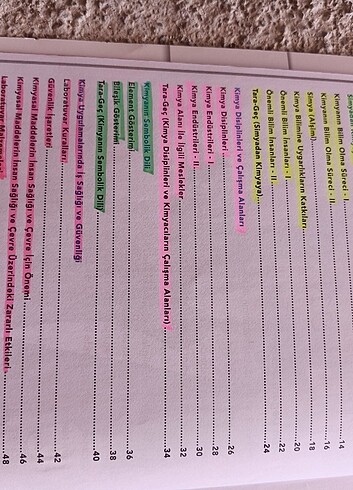 Kimyanın Bilim Olma Süreci - I 14
Kimyanın Bilim Olma Süreci - II 16
Simya (Alşimi) 18
Kimya Bilimine Uygarlıkların Katkıları 20
Önemli Bilim İnsanları - I 22
Önemli Bilim İnsanları - II 24
Tara-Geç (Simyadan Kimyaya)
Kimya Disiplinleri ve Çalışma Alanları
Kimya Disiplinleri 26
Kimya Endüstrileri - I 28
Kimya Endüstrileri - II 30
Kimya Alanı ile İlgili Meslekler 32
Tara-Geç (Kimya Disiplinleri ve Kimyacıların Çalışma Alanları) 34
Kimyanın Sembolik Dili
Element Gösterimi 36
Bileşik Gösterimi 38
Tara-Geç (Kimyanın Sembolik Dili) 40
Kimya Uygulamalarında İş Sağlığı ve Güvenliği
Laboratuvar Kuralları 42
Güvenlik İşaretleri 44
Kimyasal Maddelerin İnsan Sağlığı ve Çevre İçin Önemi 46
Kimyasal Maddelerin İnsan Sağlığı ve Çevre Üzerindeki Zararlı Etkileri 48